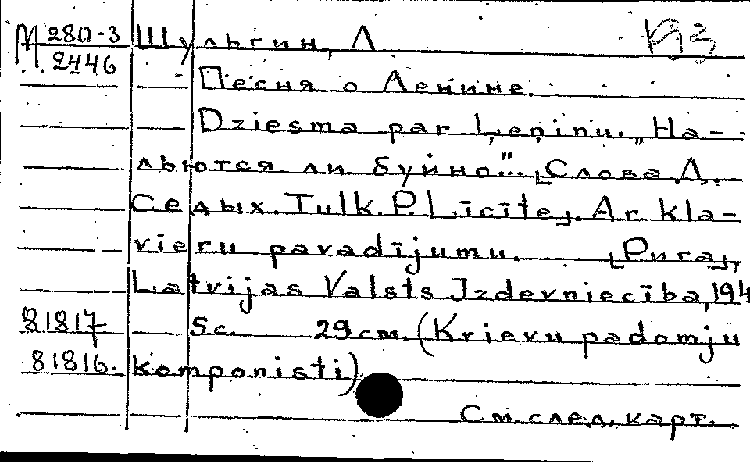 М 280-3 Шульгин, Л
2446
Песня о Ленине.
Dziesma par Ļeņinu. „На-
льются ли буйно"... [Слова Л.
Седых. Tulk. P. Līcīte]. Ar kla-
vieru pavadījumu. [Рига],
Latvijas Valsts Izdevniecība, 194
81817 5 с. 29 см. (Krievu padomju
81816. komponisti)
См. след. карт.